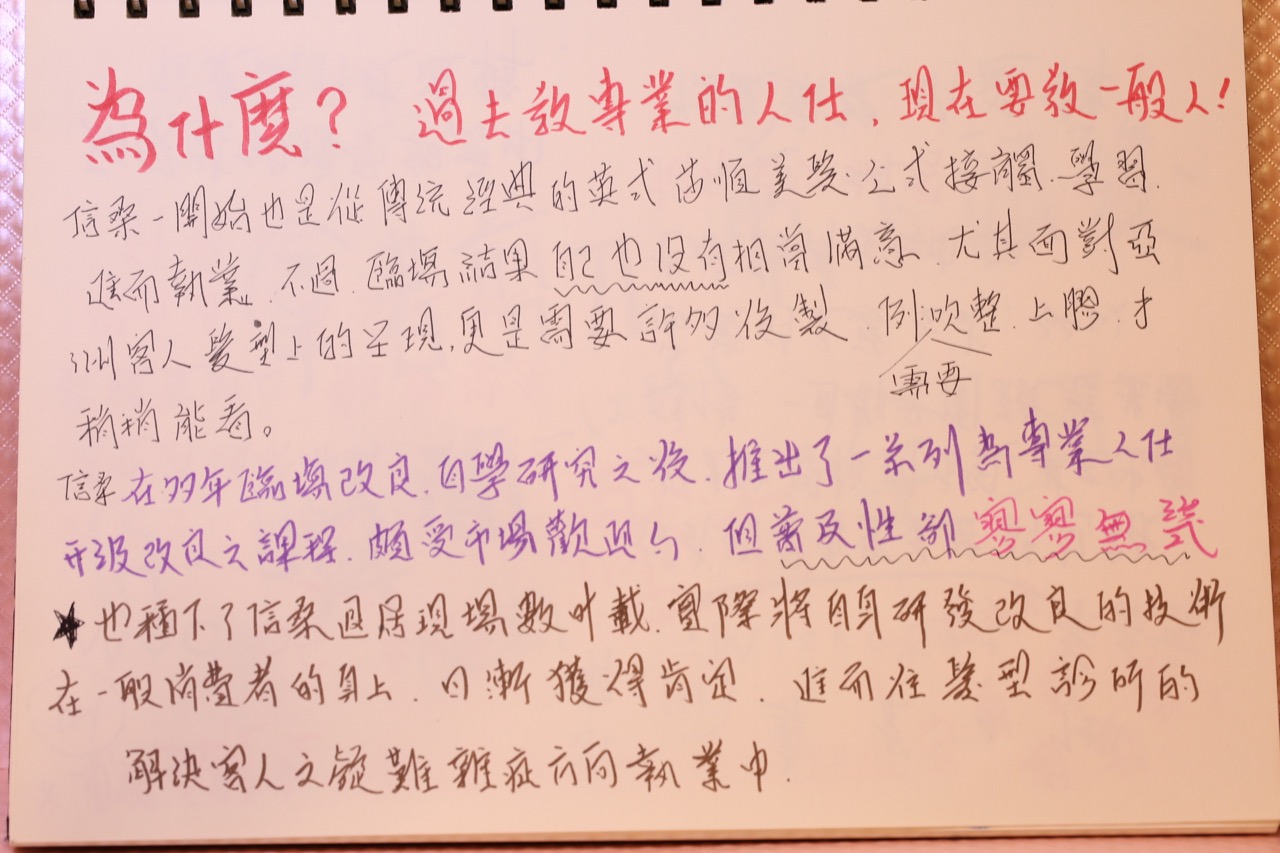 為什麼？ 過去教專業的人仕，現在要教一般人！
信桑一開始也是從傳統經典的英式沙宣美髮公式接觸.學習.
進而執業.不過.臨場結果自己也沒有相當滿意.尤其面對亞
洲客人髮型上的呈現,更是需要許多後製.例吹整.上膠.才
需要
稍稍能看。
信桑在多年臨場改良.自學研究之後.推出了一系列為專業人仕
升級改良之課程.頗受市場歡迎.但普及性卻寥寥無幾
★也種下了信桑退居現場數年載.實際將自身研發改良的技術
在一般消費者的身上.日漸獲得肯定.進而往髮型診所的
解決客人之疑難雜症方向執業中.